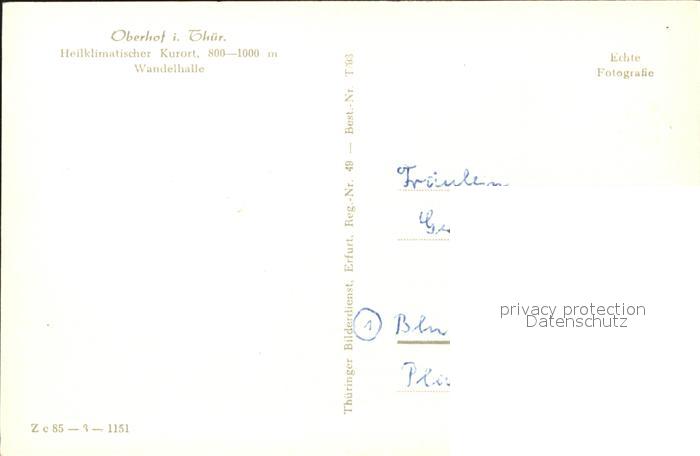 Oberhof i. Thür.
Heilklimatischer Kurort, 800—1000 m
Wandelhalle
Echte
Fotografie
Thüringer Bilderdienst, Erfurt, Reg.-Nr. 49 — Best.-Nr. T/93
Fräulein
Ge
① Bln
privacy protection
Datenschutz
Z c 85 — 3 — 1151